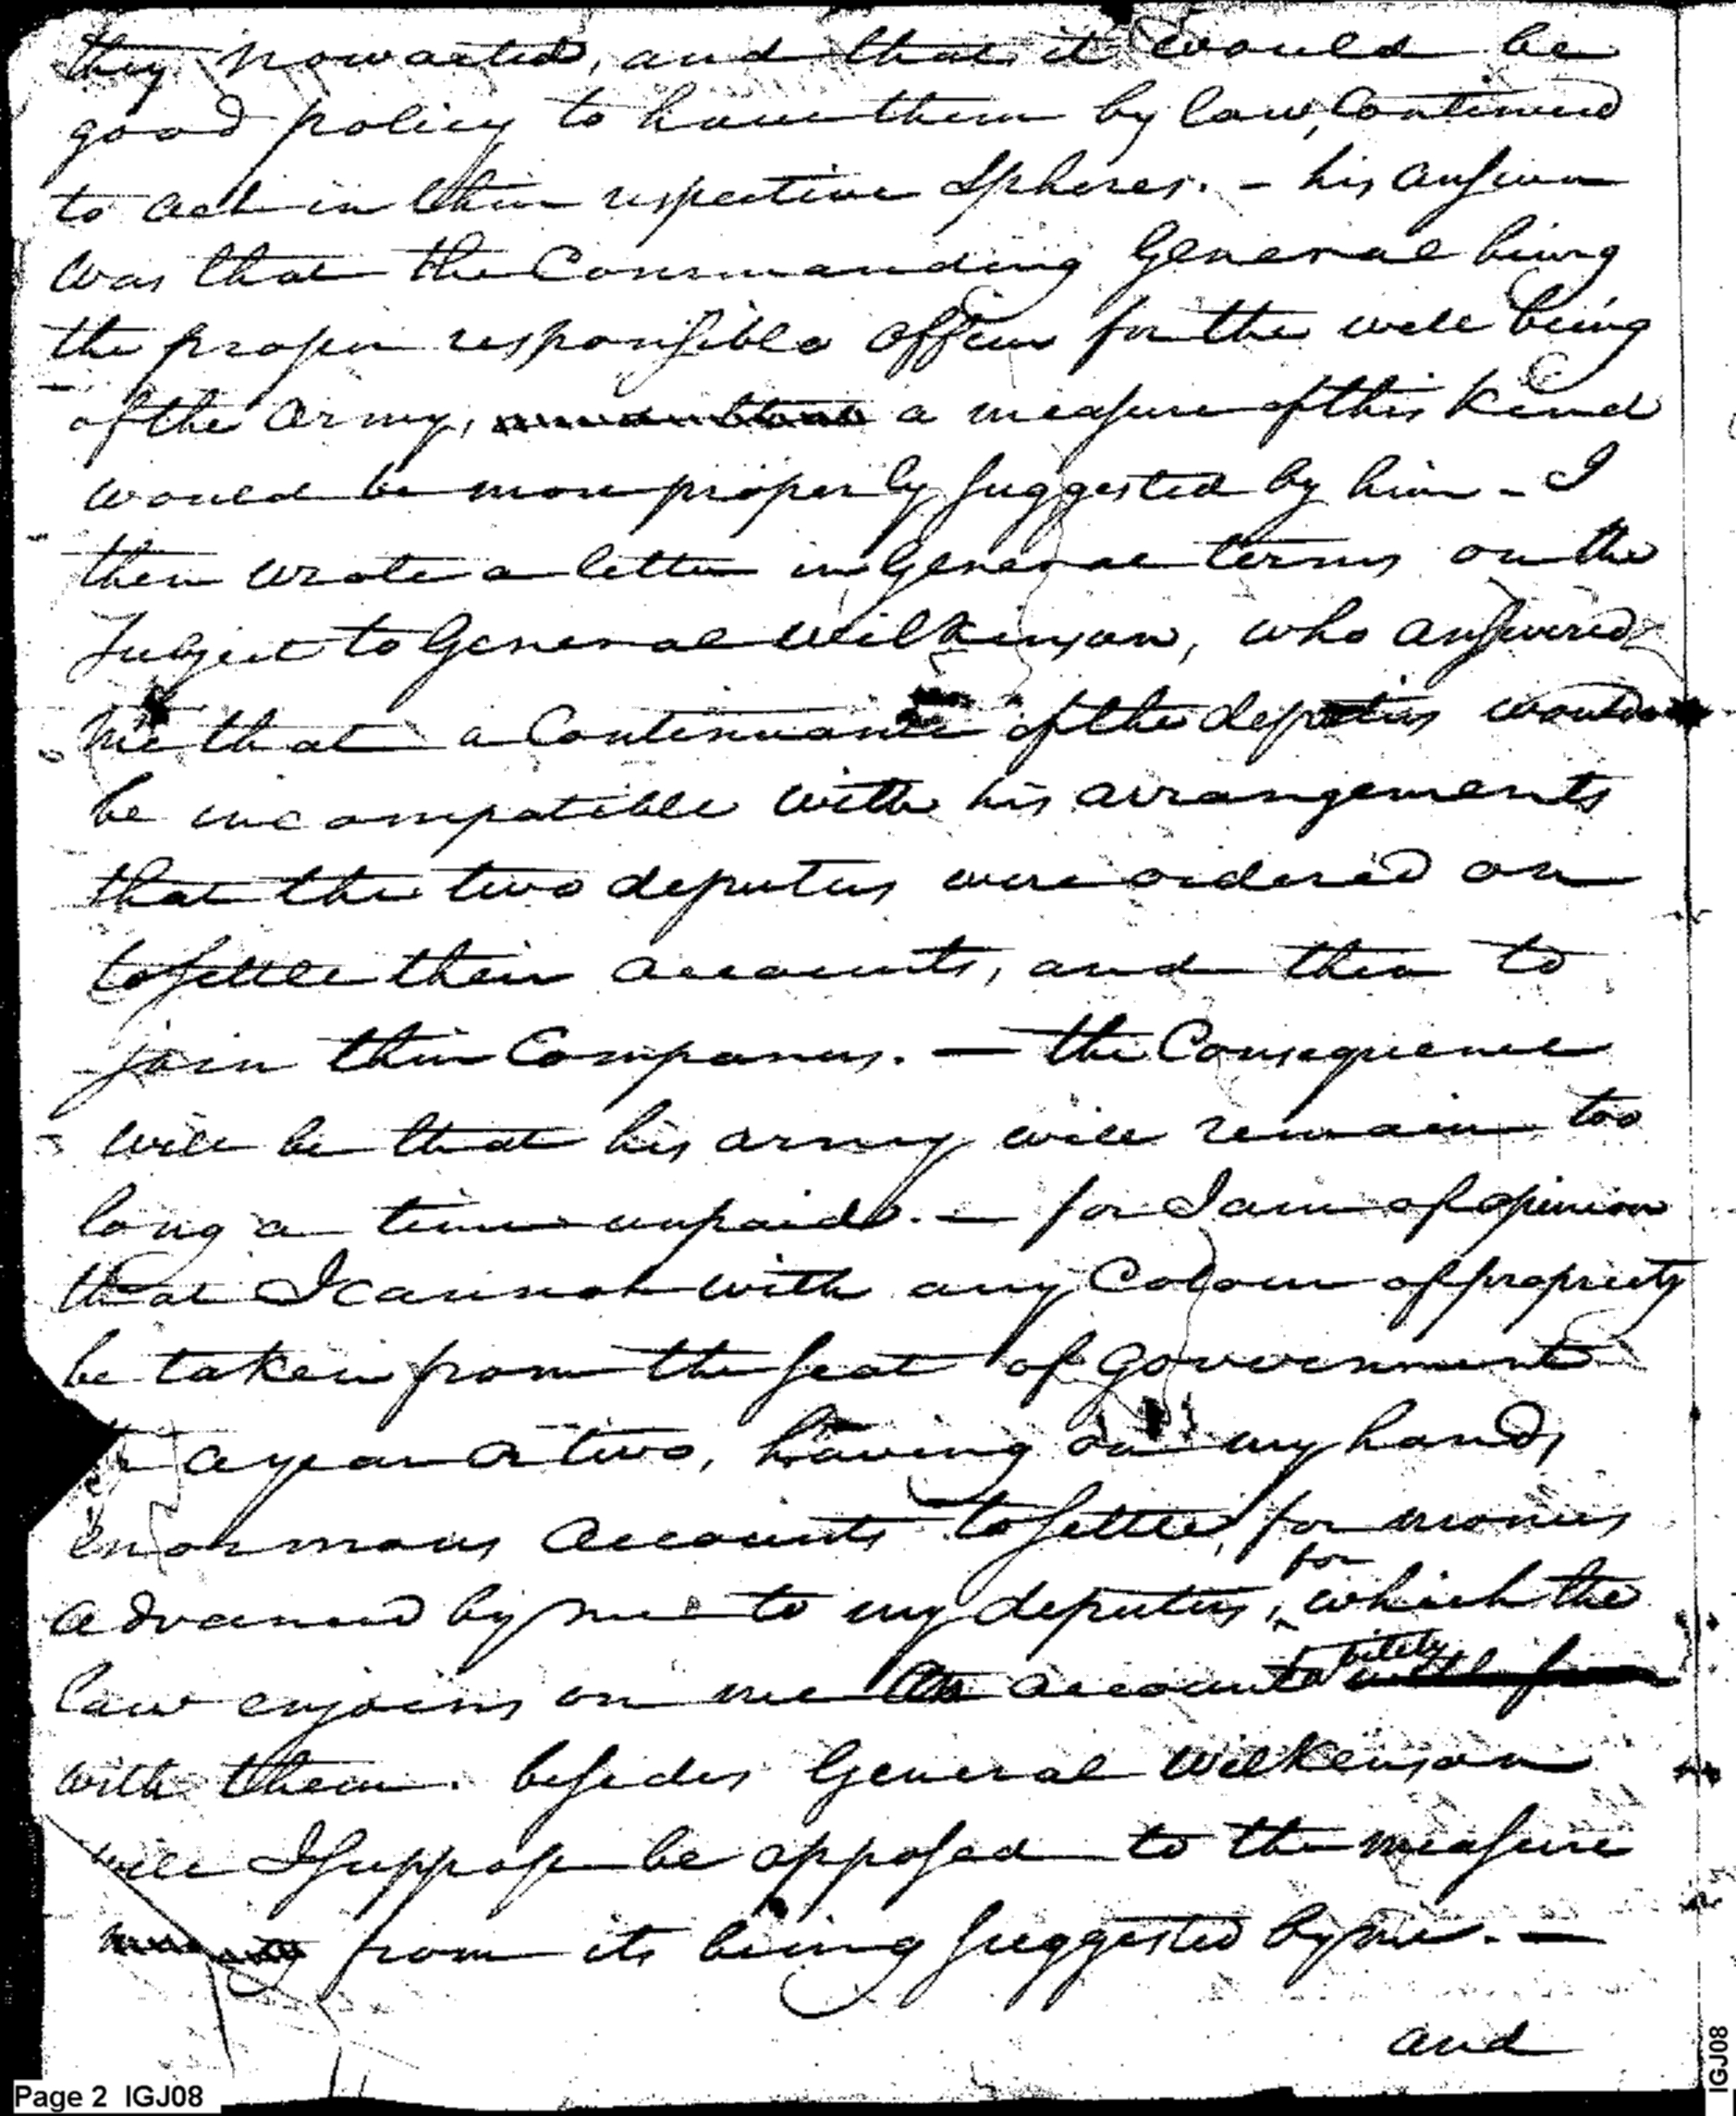 they now acted, and that it would be
good policy to have them by law, Continued
to act in their respective Spheres. - his answer
was that the Commanding General being
the proper responsible officer for the well being
of the army, a measure of this kind
would be more properly suggested by him - I
then wrote a letter in General terms on the
Subject to General Wilkinson, who answered
me that a Continuance of the deputies would
be incompatible with his arrangements
that the two deputies were ordered on
to settle their accounts, and then to
join their Companies. — the Consequence
will be that his army will remain too
long a time unpaid. — for I am of opinion
that I cannot with any Colour of propriety
be taken from the seat of government
a year or two, having on my hands
enormous accounts to settle, for monies
advanced by me to my deputies, for which the
law enjoins on me accountability
with them. besides General Wilkenson
will I suppose be opposed to the measure
from its being suggested by me. —
and
Page 2 IGJ08
IGJ08